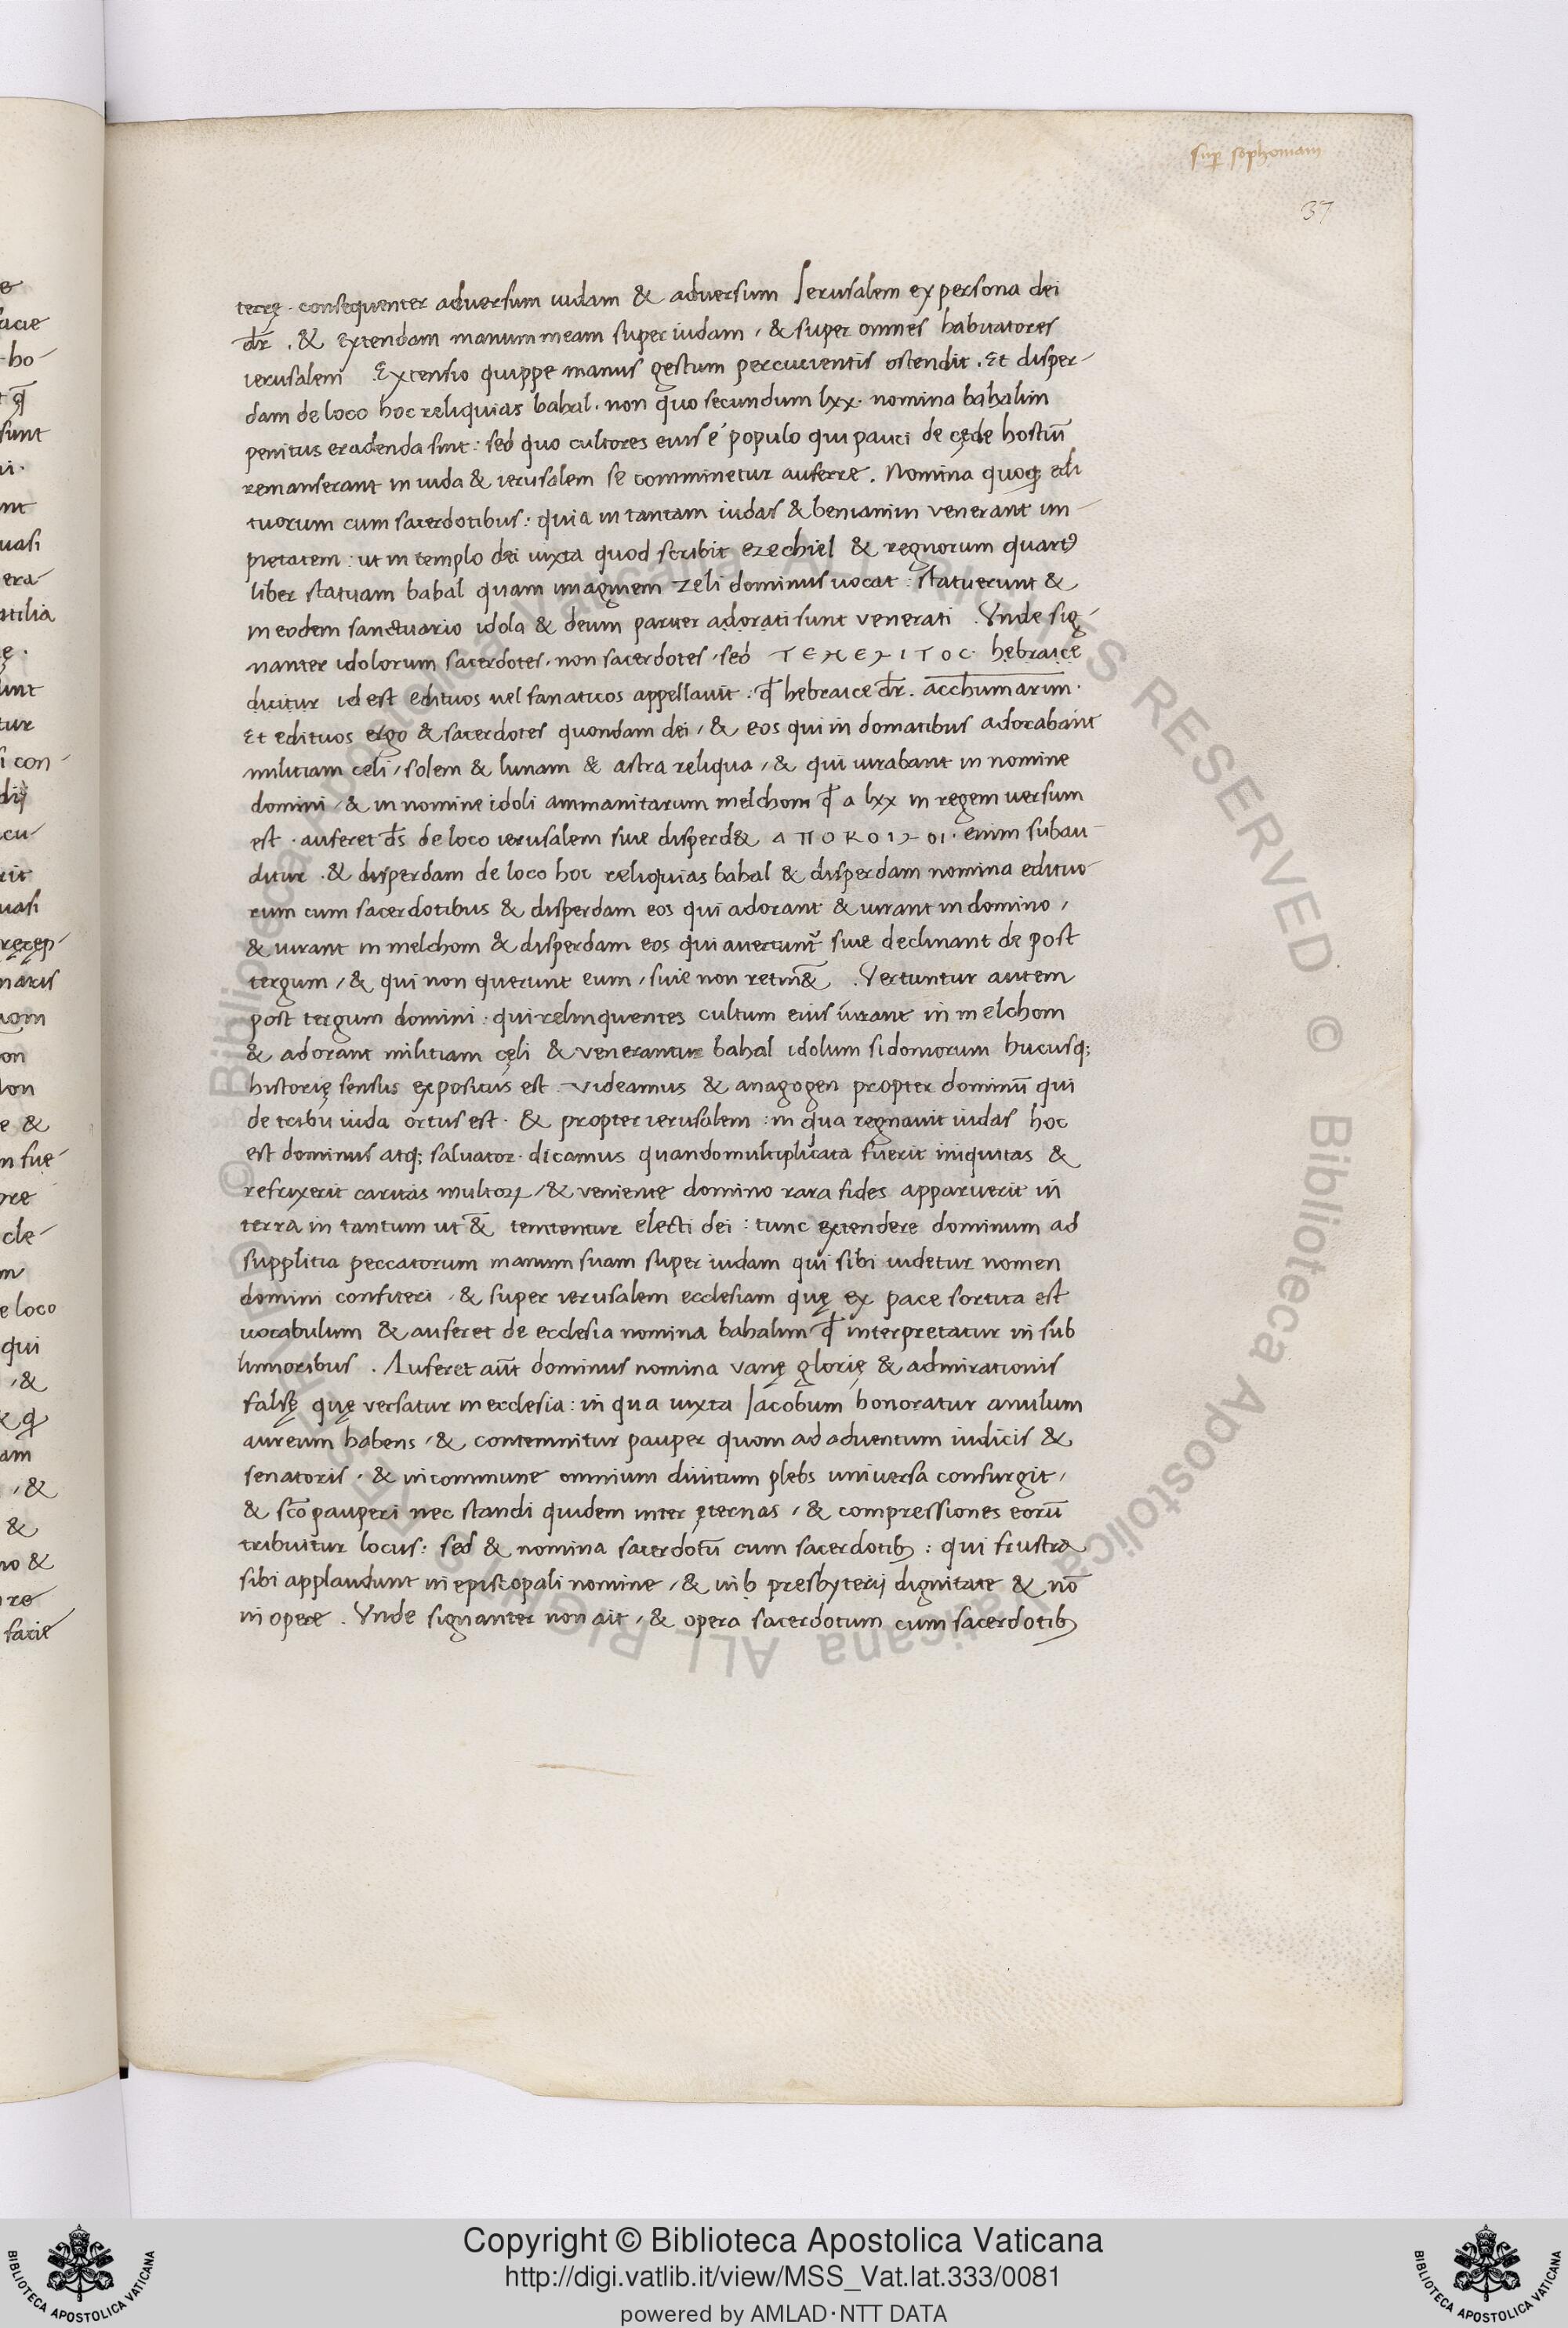 sup̄ sophoniam
37
terrę · consequenter adversum iudam & adversum Ierusalem ex persona dei
dr̄ . & extendam manum meam super iudam , & super omnes habitatores
ierusalem . Extensio quippe manus gestum percutientis ostendit . Et disper-
dam de loco hoc reliquias bahal . non quo secundum lxx . nomina bahalim
penitus eradenda sint : sed quo cultores eius é populo qui pauci de cęde hostiū
remanserant in iuda & ierusalem se comminetur auferre . Nomina quoq; edi
tuorum cum sacerdotibus : quia in tantam iudas & beniamin venerant im-
pietatem : ut in templo dei iuxta quod scribit ezechiel & regnorum quartꝰ
liber statuam bahal quam imaginem zeli dominus uocat : statuerunt &
in eodem sanctuario idola & deum pariter adorati sunt venerati . Vnde sig-
nanter idolorum sacerdotes . non sacerdotes , sed hebraice
dicitur id est edituos uel fanaticos appellauit : qd̄ hebraice dr̄ . acchumarim .
Et edituos ergo & sacerdotes quondam dei , & eos qui in domatibus adorabant
militiam celi , solem & lunam & astra reliqua , & qui iurabant in nomine
domini , & in nomine idoli ammanitarum melchom qd̄ a lxx in regem uersum
est . auferet ds̄ de loco ierusalem siue disperd& enim subau-
ditur . & disperdam de loco hoc reliquias bahal & disperdam nomina edituo-
rum cum sacerdotibus & disperdam eos qui adorant & iurant in domino ,
& iurant in melchom & disperdam eos qui avertunt᷑ siue declinant de post
tergum , & qui non querunt eum , siue non retin& . Vertuntur autem
post tergum domini : qui relinquentes cultum eius iurant in melchom
& adorant militiam cęli & venerantur bahal idolum sidoniorum hucusq;
historię sensus expositus est . Videamus & anagogen propter dominū qui
de tribu iuda ortus est . & propter ierusalem : in qua regnauit iudas hoc
est dominus atq; saluator . dicamus quando multiplicata fuerit iniquitas &
refrixerit caritas multoꝝ , & veniente domino rara fides apparuerit in
terra in tantum ut & temtentur electi dei : tunc extendere dominum ad
supplitia peccatorum manum suam super iudam qui sibi uidetur nomen
domini confiteri , & super ierusalem ecclesiam quę ex pace sortita est
uocabulum & auferet de ecclesia nomina bahalim qd̄ interpretatur in sub
limioribus . Auferet aūt dominus nomina vanę glorię & admirationis
falsę quę versatur in ecclesia : in qua iuxta Iacobum honoratur anulum
aureum habens , & contemnitur pauper quom ad aduentum iudicis &
senatoris , & in commune omnium diuitum plebs universa consurgit ,
& scō pauperi nec standi quidem inter ęternas , & compressiones eorū
tribuitur locus : sed & nomina sacerdotū cum sacerdotibꝫ : qui frustra
sibi applaudunt in episcopali nomine , & in b presbyterij dignitate & nō
in opere . Vnde signanter non ait , & opera sacerdotum cum sacerdotibꝫ
Copyright © Biblioteca Apostolica Vaticana
http://digi.vatlib.it/view/MSS_Vat.lat.333/0081
powered by AMLAD·NTT DATA